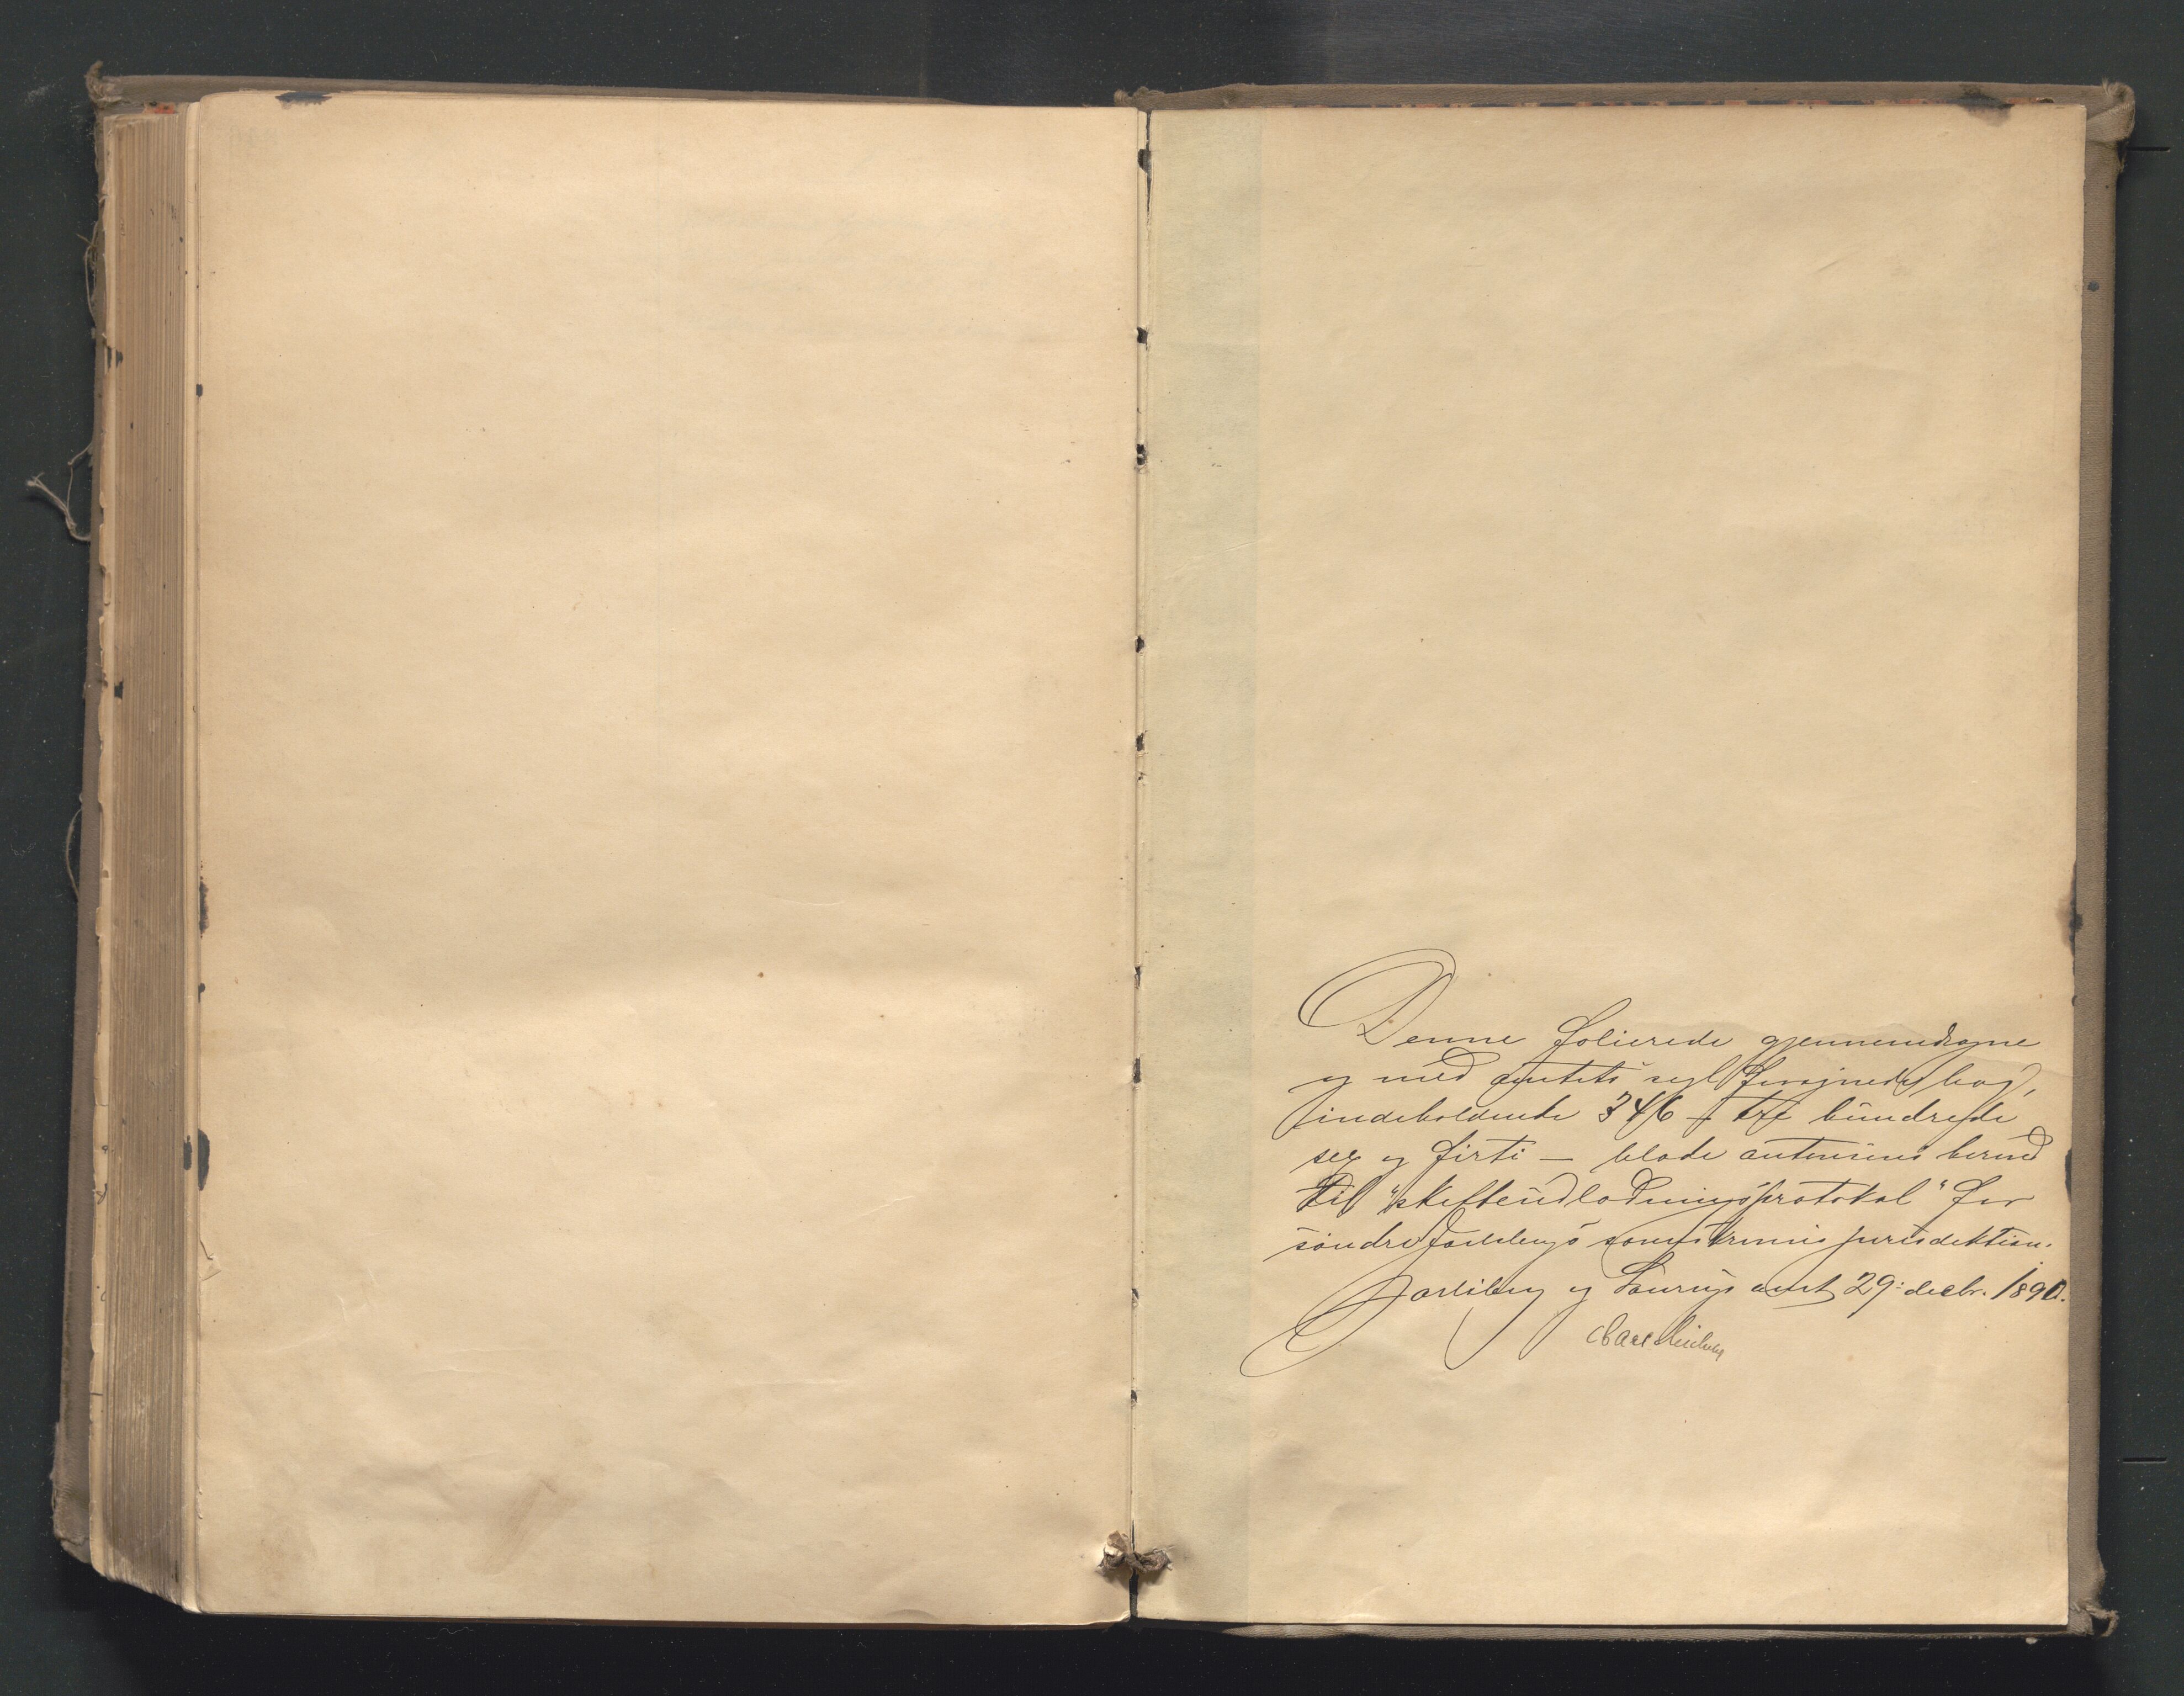 Denne folierede gjennemdragne
og med amtets segl forsynede bog,
indeholdende 346 – tre hundrede
sex og firti – blade autoriseres herved
til "skifteudlodningsprotokol" for
søndre Jarlsbergs sorenskriveris jurisdiktion.
Jarlsberg og Laurvigs amt 29: decbr. 1890.